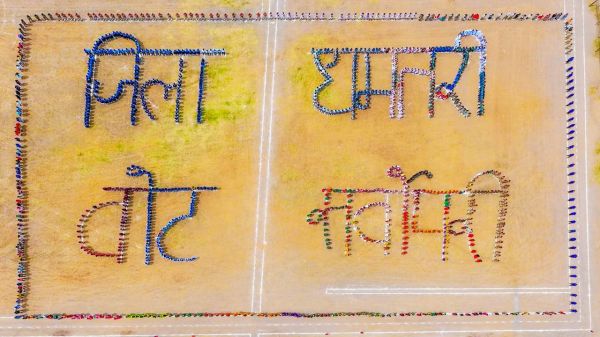 जिला धमतरी
वोट सर्वोपरी